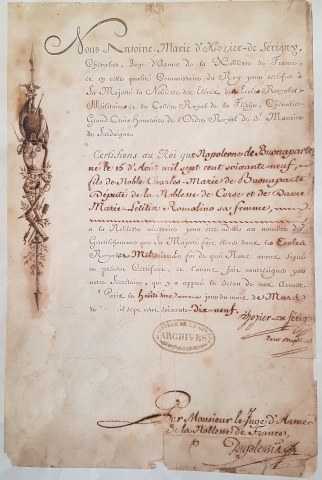 Nous Antoine-Marie d'Hozier-de Sérigny,
Chevalier, Juge d'Armes de la Noblesse de France,
et en cette qualité Commissaire du Roy pour certifier à
Sa Majesté la Noblesse des Elèves des Ecoles Royales
Militaires et du College Royal de la Flèche, Chevalier
Grand-Croix Honoraire de l'Ordre Royal de St Maurice
de Sardaigne
Certifions au Roi que Napoleone de Buonaparte
né le 15 d'Août mil sept cent soixante neuf,
fils de Noble Charles-Marie de Buonaparte
député de la Noblesse de Corse et de Dame
Marie-Letitia Romolino sa femme,
a la Noblesse nécessaire pour être admis au nombre des
Gentilshommes que Sa Majesté fait élever dans les Ecoles
Royales Militaires. En foi de quoi Nous avons signé
ce présent Certificat, et l'avons fait contresigner par
notre Secrétaire, qui y a apposé le sceau de nos Armes.
Paris le huitième jour du mois de Mars
mil sept cent soixante dix-neuf.
d'hozier-de Sérigny
ARCHIVES
Par Monsieur le Juge d'Armes
de la Noblesse de France,
Duplessis